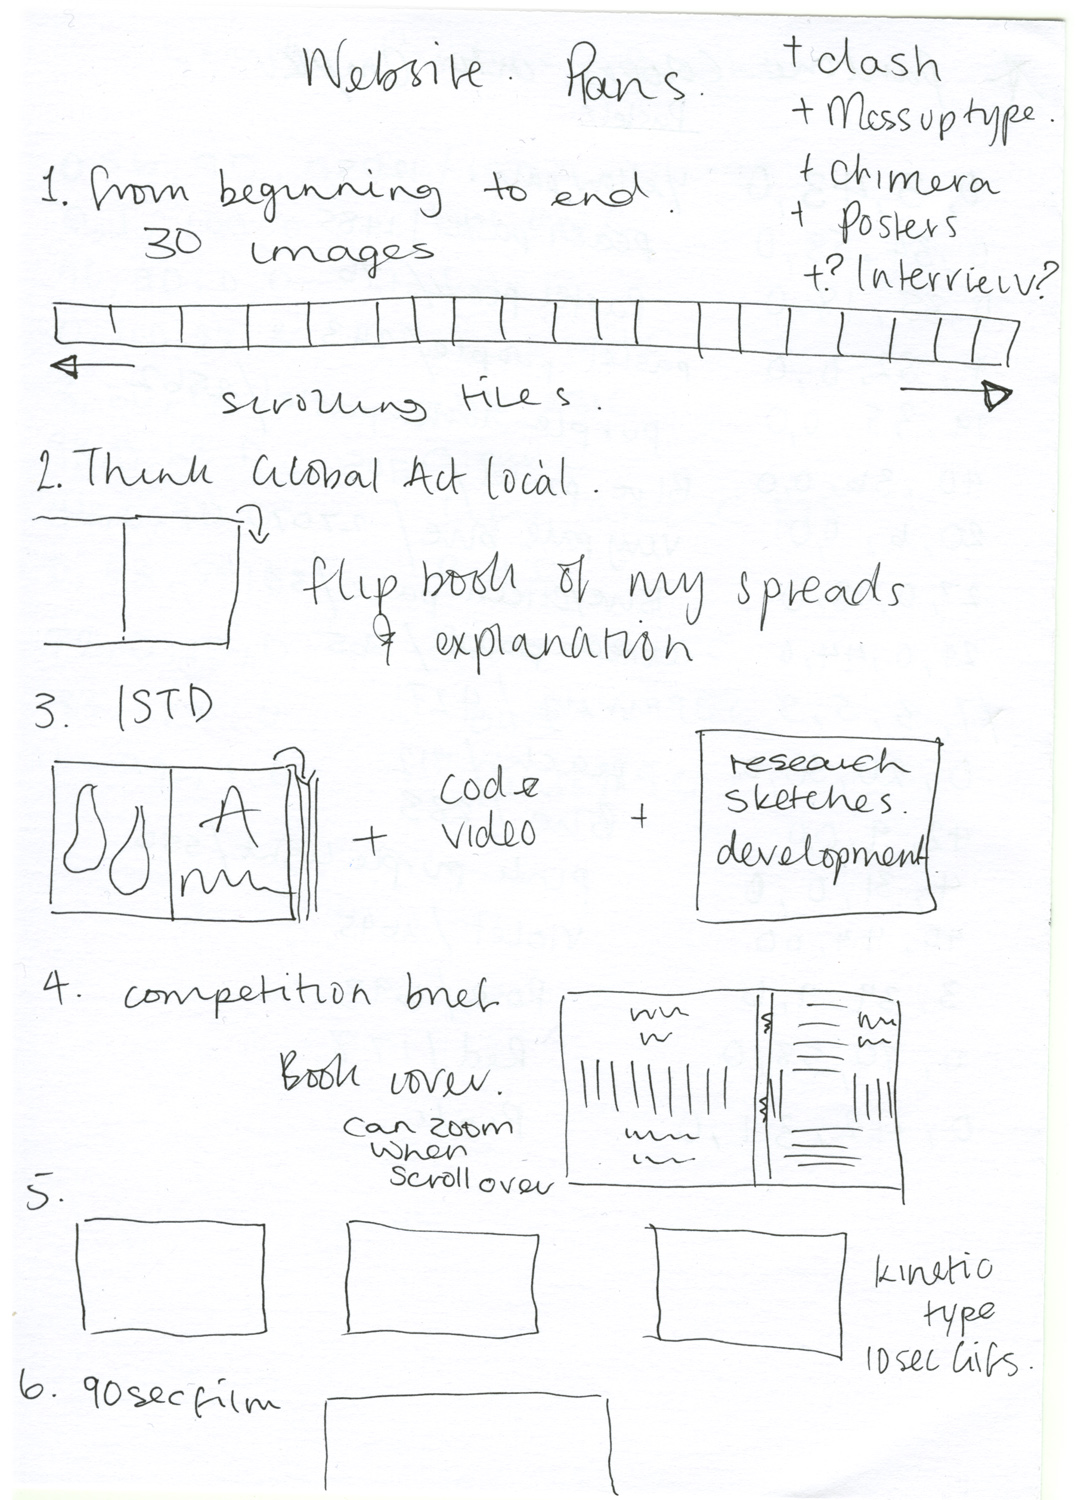 Website Plans.
+ clash
+ Messuptype.
+ Chimera
+ Posters
+? Interview?
1. from beginning to end.
30 images
scrolling tiles.
2. Think Global Act local.
flip book of my spreads
& explanation
3. ISTD
A
+ code
video
+ research
sketches.
development
4. competition brief
Book cover.
can zoom
when
scroll over
5.
kinetic
type
10sec Gifs.
6. 90sec film